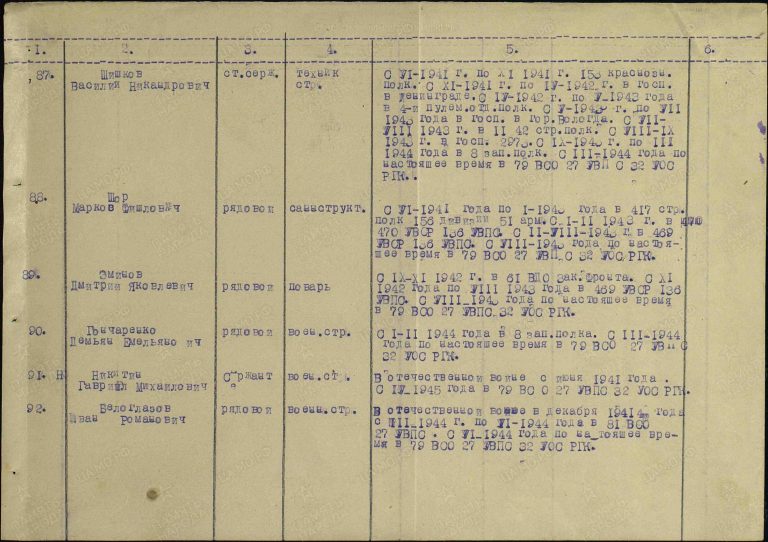 1. 2. 3. 4. 5. 6.
87. Шишков ст.серж. техник С УI-1941 г. по XI 1941 г. 153 краснозн.
Василий Никандрович стр. полк. С XI-1941 г. по IУ-1942 г. в Госп.
в Ленинграде. С IУ-1942 г. по У-1943 года
в 4-й пулем.отд.полк. С У-1943 г. по УII
1943 года в Госп. в гор.Вологда. С УII-
УIII 1943 г. в II 42 стр.полк. С УIII-IX
1943 г. в госп. 2973. С IX-1943 г. по III
1944 года в 8 зап.полк. С III-1944 года по
настоящее время в 79 ВСО 27 УВП С 32 УОС
РГК.
88. Шор
Марков Фишлович рядовой санаструкт. С УI-1941 года по I-1943 года в 417 стр.
полк 156 дивизии 51 арм. С I-II 1943 г. в 470
470 УВСР 136 УВПС. С II-УIII-1943 г. в 469
УВСР 136 УВПС. С УIII-1943 года по настоя-
щее время в 79 ВСО 27 УВП С 32 УОС РГК.
89. Эминов С IX-XI 1942 г. в 61 ВПО Зак.Фронта. С XI
Дмитрий Яковлевич рядовой повар 1942 года по УIII 1943 года в 469 УВСР 136
УВПС. С УIII-1943 года по настоящее время
в 79 ВСО 27 УВПС 32 УОС РГК.
90. Гончаренко рядовой воен.стр. С I-II 1944 года в 8 зап.полка. С III-1944
Демьян Емельянович года по настоящее время в 79 ВСО 27 УВП С
32 УОС РГК.
91. Н Никитин Сержант воен.стр. В отечественной войне с июня 1941 года.
Гавриил Михайлович С IУ-1945 года в 79 ВС О 27 УВПС 32 УОС РГК.
92. Белоглазов рядовой воени.стр. В отечественной войне в декабря 1941 года
Иван Романович г. по УI-1944 года в 81 ВСО
27 УВПС. С УI-1944 года по на_тоящее вре-
мя в 79 ВСО 27 УВПС 32 УОС РГК.